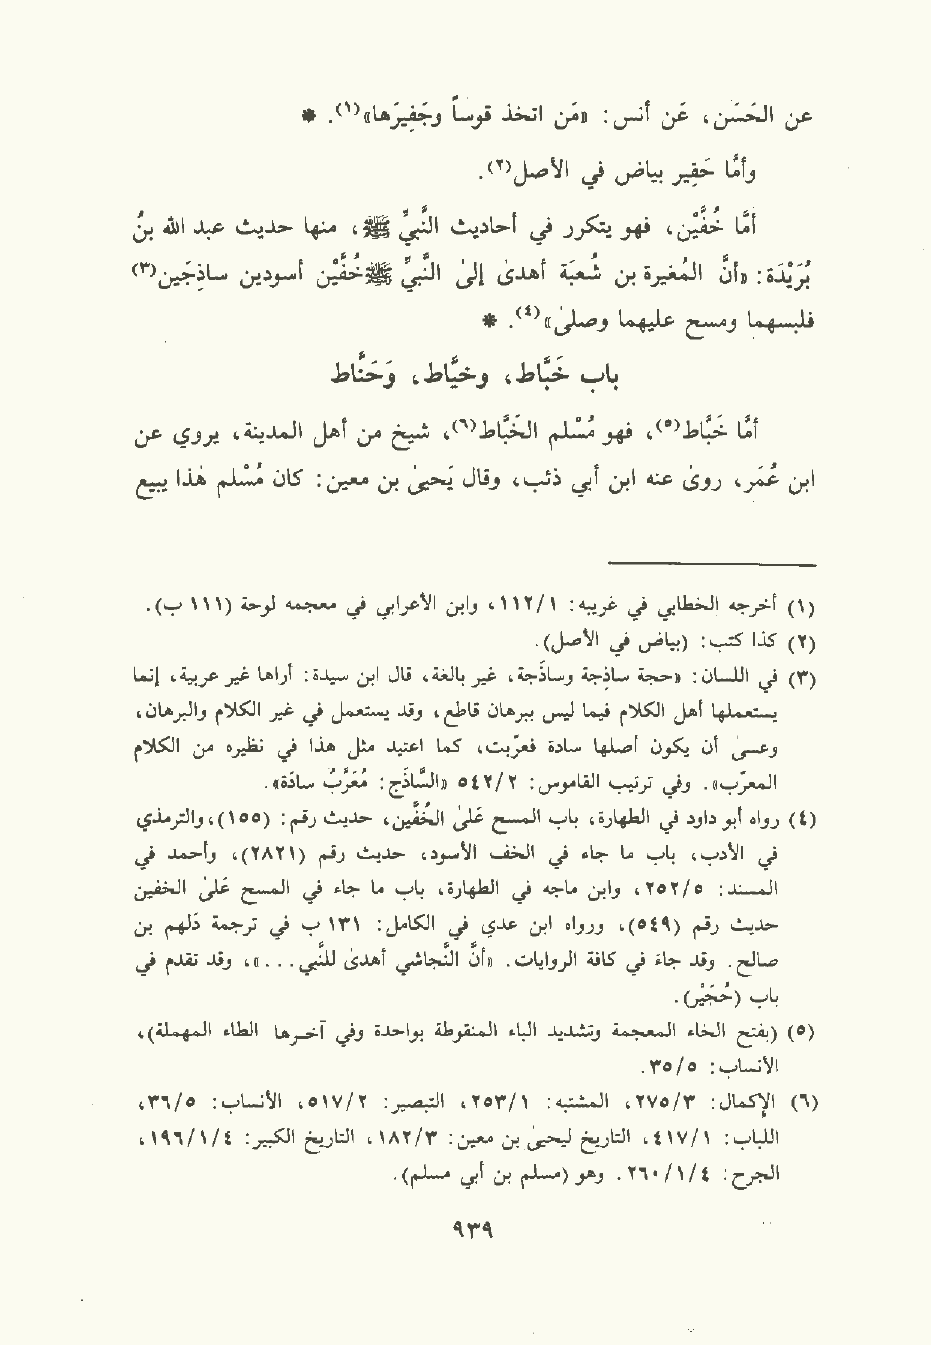 عن الحَسَن، عَن أنس: «مَن اتخذ قوساً وجَفِيرَها»(١). *
وأمَّا حَفِير بياض في الأصل(٢).
أمَّا خُفَّيْن، فهو يتكرر في أحاديث النَّبيِّ ﷺ، منها حديث عبد الله بنُ
بُرَيْدَة: «أنَّ المُغيرة بن شُعبَة أهدىٰ إلىٰ النَّبيِّ ﷺ خُفَّيْن أسودين ساذِجَين(٣)
فلبسهما ومسح عليهما وصلىٰ»(٤). *
باب خَبَّاط، وخيَّاط، وَحَنَّاط
أمَّا خَبَّاط(٥)، فهو مُسْلم الخَبَّاط(٦)، شيخ من أهل المدينة، يروي عن
ابن عُمَر، روىٰ عنه ابن أبي ذئب، وقال يَحيىٰ بن معين: كان مُسْلم هٰذا يبيع
(١) أخرجه الخطابي في غريبه: ١/١١٢، وابن الأعرابي في معجمه لوحة (١١١ ب).
(٢) كذا كتب: (بياض في الأصل).
(٣) في اللسان: «حجة ساذِجة وساذَجة، غير بالغة، قال ابن سيدة: أراها غير عربية، إنما
يستعملها أهل الكلام فيما ليس ببرهان قاطع، وقد يستعمل في غير الكلام والبرهان،
وعسىٰ أن يكون أصلها سادة فعرّبت، كما اعتيد مثل هذا في نظيره من الكلام
المعرّب». وفي ترتيب القاموس: ٢/٥٤٢ «السَّاذَج: مُعَرَّبُ سادَة».
(٤) رواه أبو داود في الطهارة، باب المسح عَلىٰ الخُفَّين، حديث رقم: (١٥٥)، والترمذي
في الأدب، باب ما جاء في الخف الأسود، حديث رقم (٢٨٢١)، وأحمد في
المسند: ٥/٢٥٢، وابن ماجه في الطهارة، باب ما جاء في المسح عَلىٰ الخفين
حديث رقم (٥٤٩)، ورواه ابن عدي في الكامل: ١٣١ ب في ترجمة دَلهم بن
صالح. وقد جاءَ في كافة الروايات. «أنَّ النَّجاشي أهدىٰ للنَّبي...»، وقد تقدم في
باب (حُجَيْر).
(٥) (بفتح الخاء المعجمة وتشديد الباء المنقوطة بواحدة وفي آخرها الطاء المهملة)،
الأنساب: ٥/٣٥.
(٦) الإكمال: ٣/٢٧٥، المشتبه: ١/٢٥٣، التبصير: ٢/٥١٧، الأنساب: ٥/٣٦،
اللباب: ١/٤١٧، تاريخ ليحيىٰ بن معين: ٣/١٨٢، التاريخ الكبير: ٤/١/١٩٦،
الجرح: ٤/١/٢٦٠. وهو (مسلم بن أبي مسلم).
٩٣٩